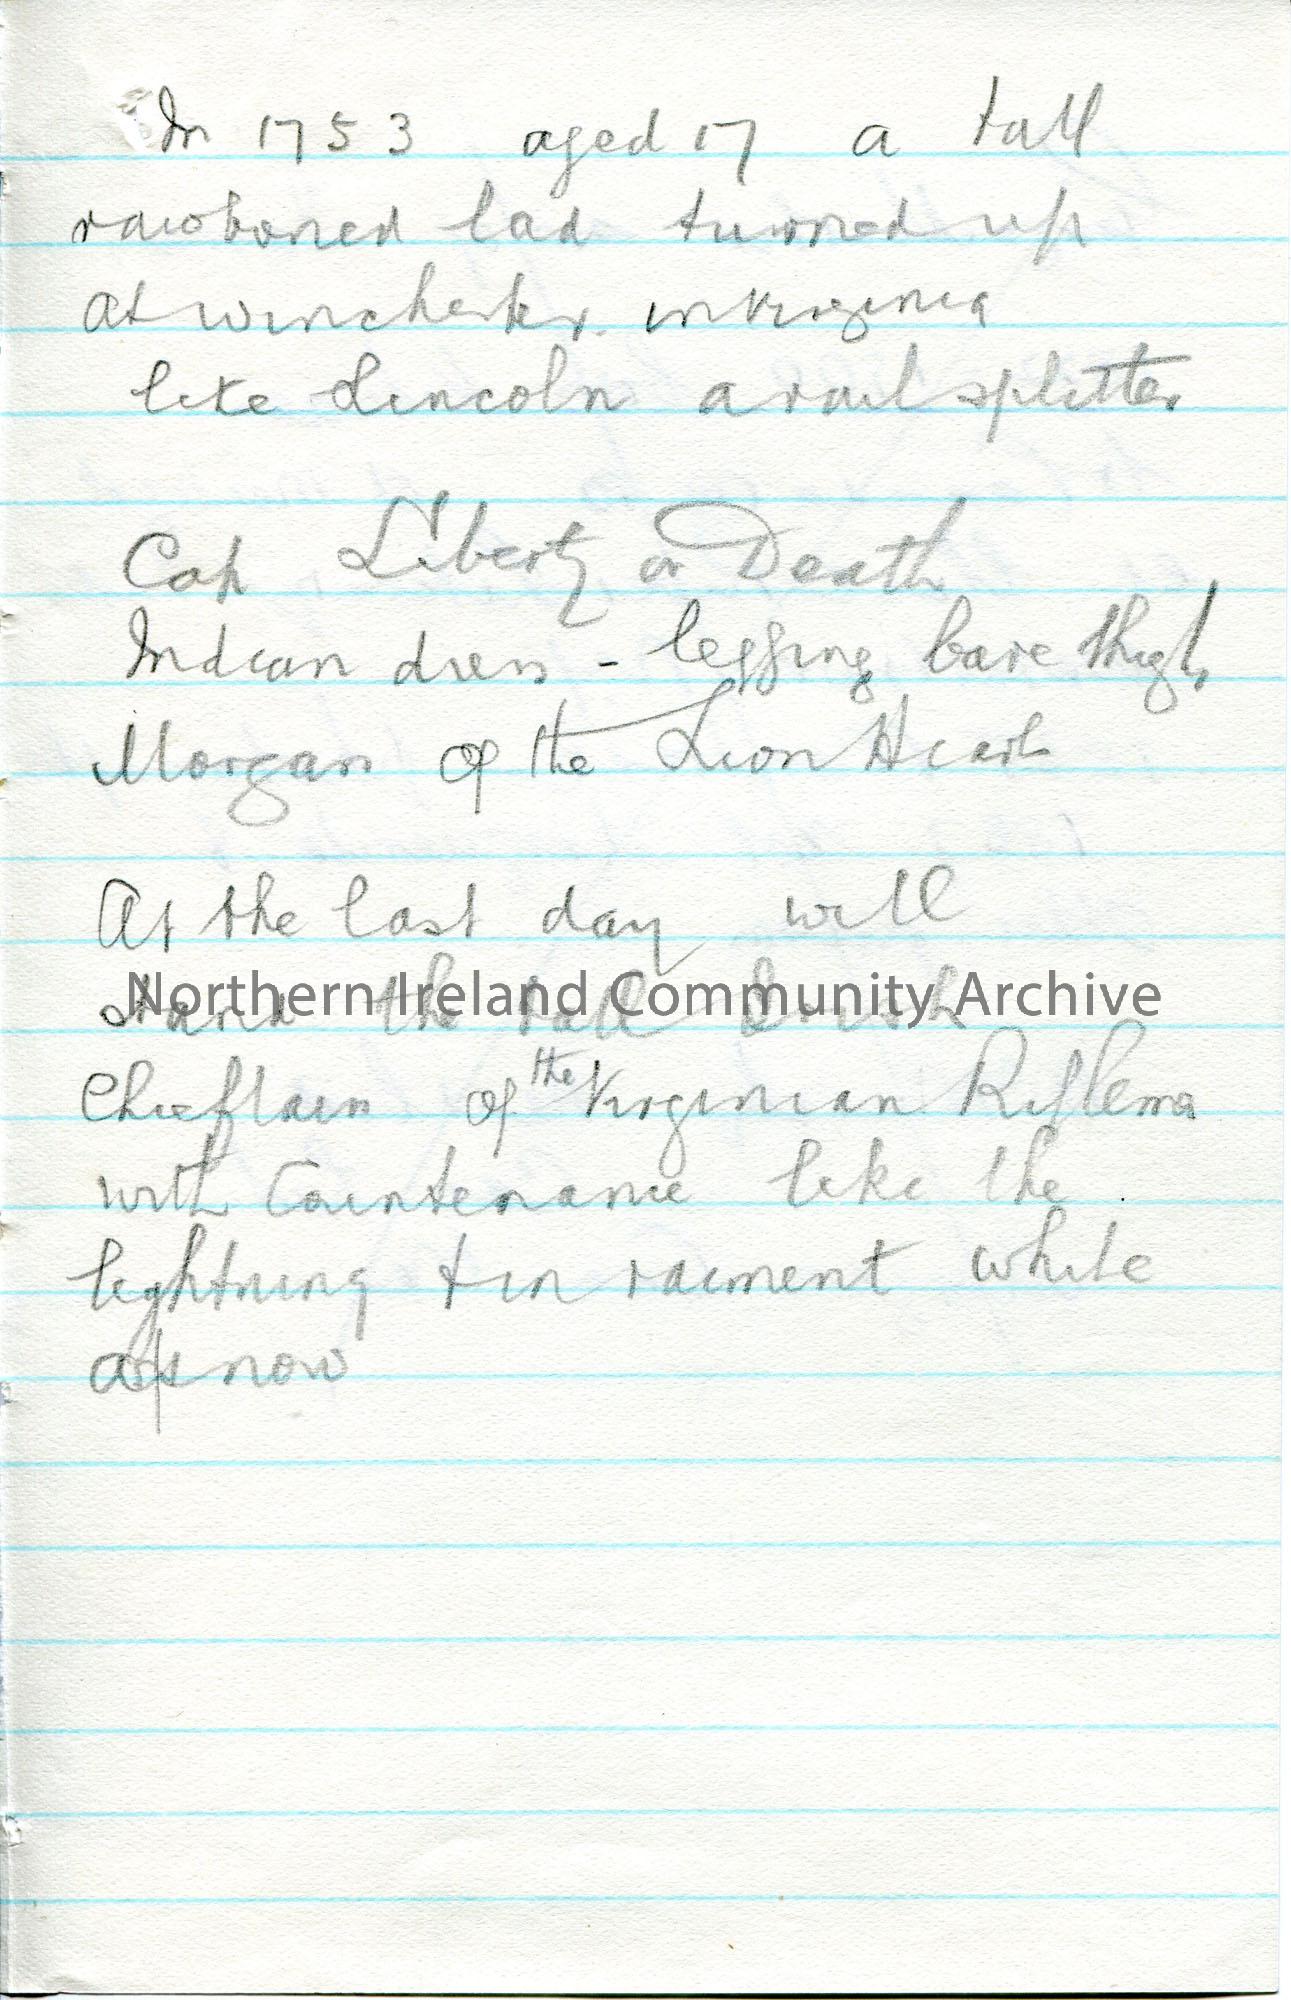 In 1753 aged 17 a tall
rawboned lad turned up
at Winchester. in Virginia
like Lincoln a rail splitter
Cap Liberty or Death
Indian dress - legging bare thigh
Morgan of the Lion Heart
At the last day will
stand the tall Irish
Northern Ireland Community Archive
Chieftain of the Virginian Riflema
with Countenance like the
lightning & in raiment white
as snow